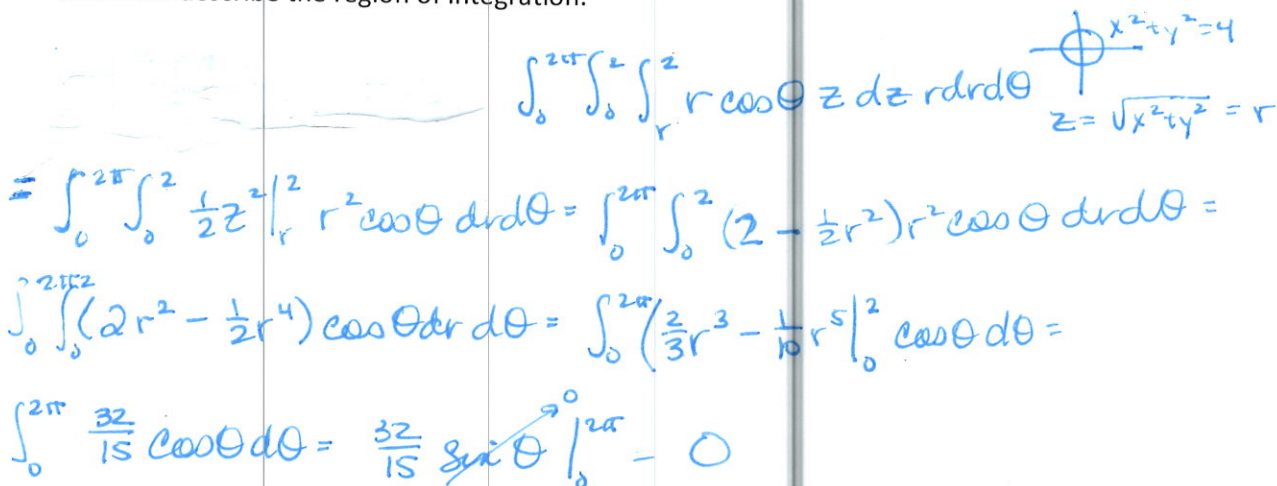 describe the region of integration.
∫₀^2π ∫₀^2 ∫ᵣ^2 r cosθ z dz r dr dθ
x²+y²=4
z = √(x²+y²) = r
= ∫₀^2π ∫₀^2 ½z²|ᵣ^2 r² cosθ dr dθ = ∫₀^2π ∫₀^2 (2 - ½r²)r² cosθ dr dθ =
∫₀^2π ∫₀^2 (2r² - ½r⁴) cosθ dr dθ = ∫₀^2π (⅔r³ - 1/10 r⁵|₀^2 cosθ dθ =
∫₀^2π 32/15 cosθ dθ = 32/15 sin θ → 0 |₀^2π = 0